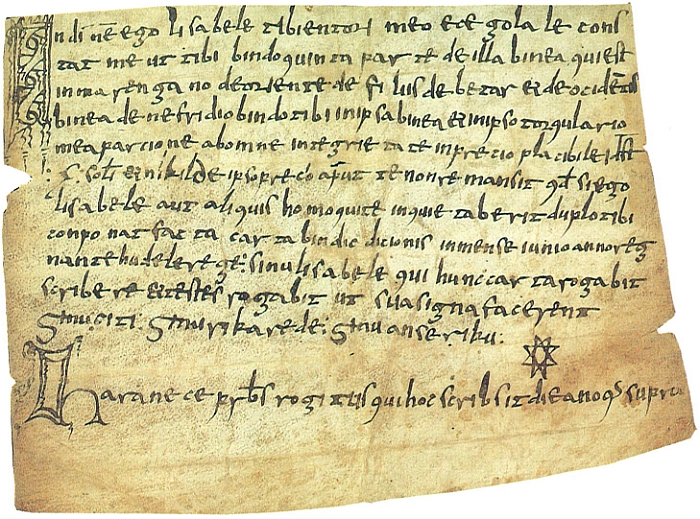 In di nē ego lisabele tibi entori meo ece gola le cons
tat me ut tibi bindo quinta parte de illa binea qui est
in marengano de oriente de filius de betar et de occidente
binea de nefridio bindo tibi in ipsa binea et in ipso torqulario
mea parcione ab omne integrietate in precio placibile id est
solī et nikil de ipso preco aput te non remansit qd si ego
lisabele aut aliquis homo qui te inquietaberit duplo tibi
conponat facta carta bindicdicionis in mense iunio anno reg
nante hudele rege sinu lisabele qui hunc carta rogabit
scribere et testes rogabit ut sua signa facerent
Sinu citi Sinu rikarede Sinu anseriku
haranece prbs rogitus qui hoc scribsit die ano qd supra